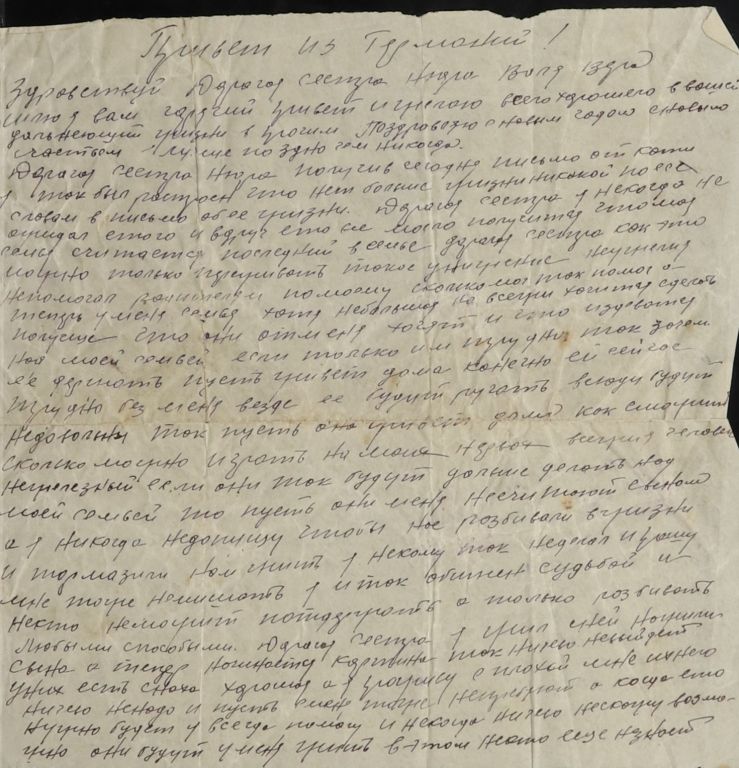 Привет из Германий!
Здравствуй Дарагая сестра Нюра Валя Вера
шлю я вам гарячий привет и желаю всего харошего в вашей
дальнеющий жизни в прочим Поздровляю с новым годом с новым
счастьем Лучше поздно чем никогда.
Дарагая сестра Нюра получив сегодня письмо от кати
я так был растроен что нет больше жизни никакой по ее
словам в письмо об ее жизни. Дарагая сестра я некогда не
ожидал етого и вдруг ето все могло получится что моя
семья считается последний в семье дарагая сестра как это
можно только придумывать такое унижение неужели
непомогал радителям помоему сколько мог так помогал
тжать у меня семья хотя небольшая но всегри хочится сделать
получше что они от меня хотят и что издеватся
над моей семьей если только им трудно так зачем
ее держать пусть живет дома конечно ей сейчас
трудно без меня везде ее будут ругать всюду будут
недовольны так пусть она живет дома как смотрит
сколько можно играть на моих нервах всегри человек
нежелезный если они так будут дальше делать над
моей семьей то пусть они меня несчитают сыном
а я никогда недопущу чтобы нас розбивали в жизни
и тормазили нам жить я некому так неделал и прошу
мне тоже немешать я и так обижен судьбой и
некто неможит поддержать а только розбивать
любыми способыми. Дарагая сестра я жил с ней ножили
сына а теперь начинается картина так ничего невыйдет
у них есть сноха харошая а я проживу с плохой мне ихнего
ничего ненадо и пусть они тоже а когда ето
нужно будет я всегда помогу и некогда ничего нескажу возмо-
жно они будут у меня жить в етом некто еще незноет